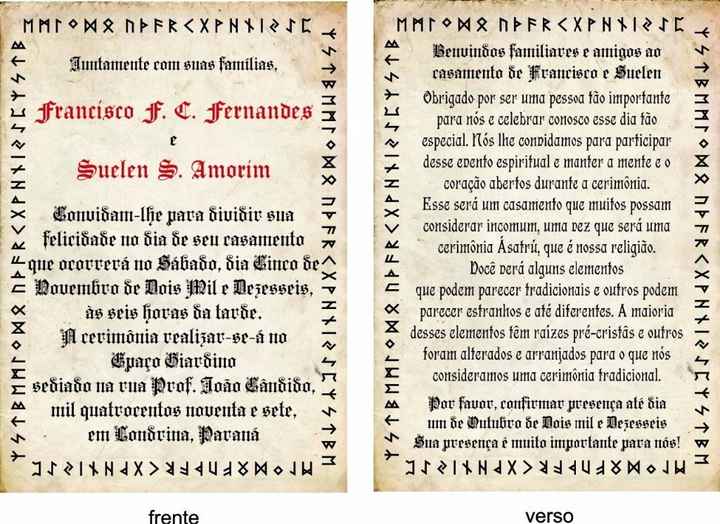 Juntamente com suas famílias,
Francisco F. C. Fernandes
e
Suelen S. Amorim
Convidam-lhe para dividir sua
felicidade no dia de seu casamento
que ocorrerá no Sábado, dia Cinco de
Novembro de Dois Mil e Dezesseis,
às seis horas da tarde.
A cerimônia realizar-se-á no
Espaço Giardino
sediado na rua Prof. João Cândido,
mil quatrocentos noventa e sete,
em Londrina, Paraná
frente
Benvindos familiares e amigos ao
casamento de Francisco e Suelen
Obrigado por ser uma pessoa tão importante
para nós e celebrar conosco esse dia tão
especial. Nós lhe convidamos para participar
desse evento espiritual e manter a mente e o
coração abertos durante a cerimônia.
Esse será um casamento que muitos possam
considerar incomum, uma vez que será uma
cerimônia Ásatrú, que é nossa religião.
Você verá alguns elementos
que podem parecer tradicionais e outros podem
parecer estranhos e até diferentes. A maioria
desses elementos têm raízes pré-cristãs e outros
foram alterados e arranjados para o que nós
consideramos uma cerimônia tradicional.
Por favor, confirmar presença até dia
um de Outubro de Dois mil e Dezesseis
Sua presença é muito importante para nós!
verso